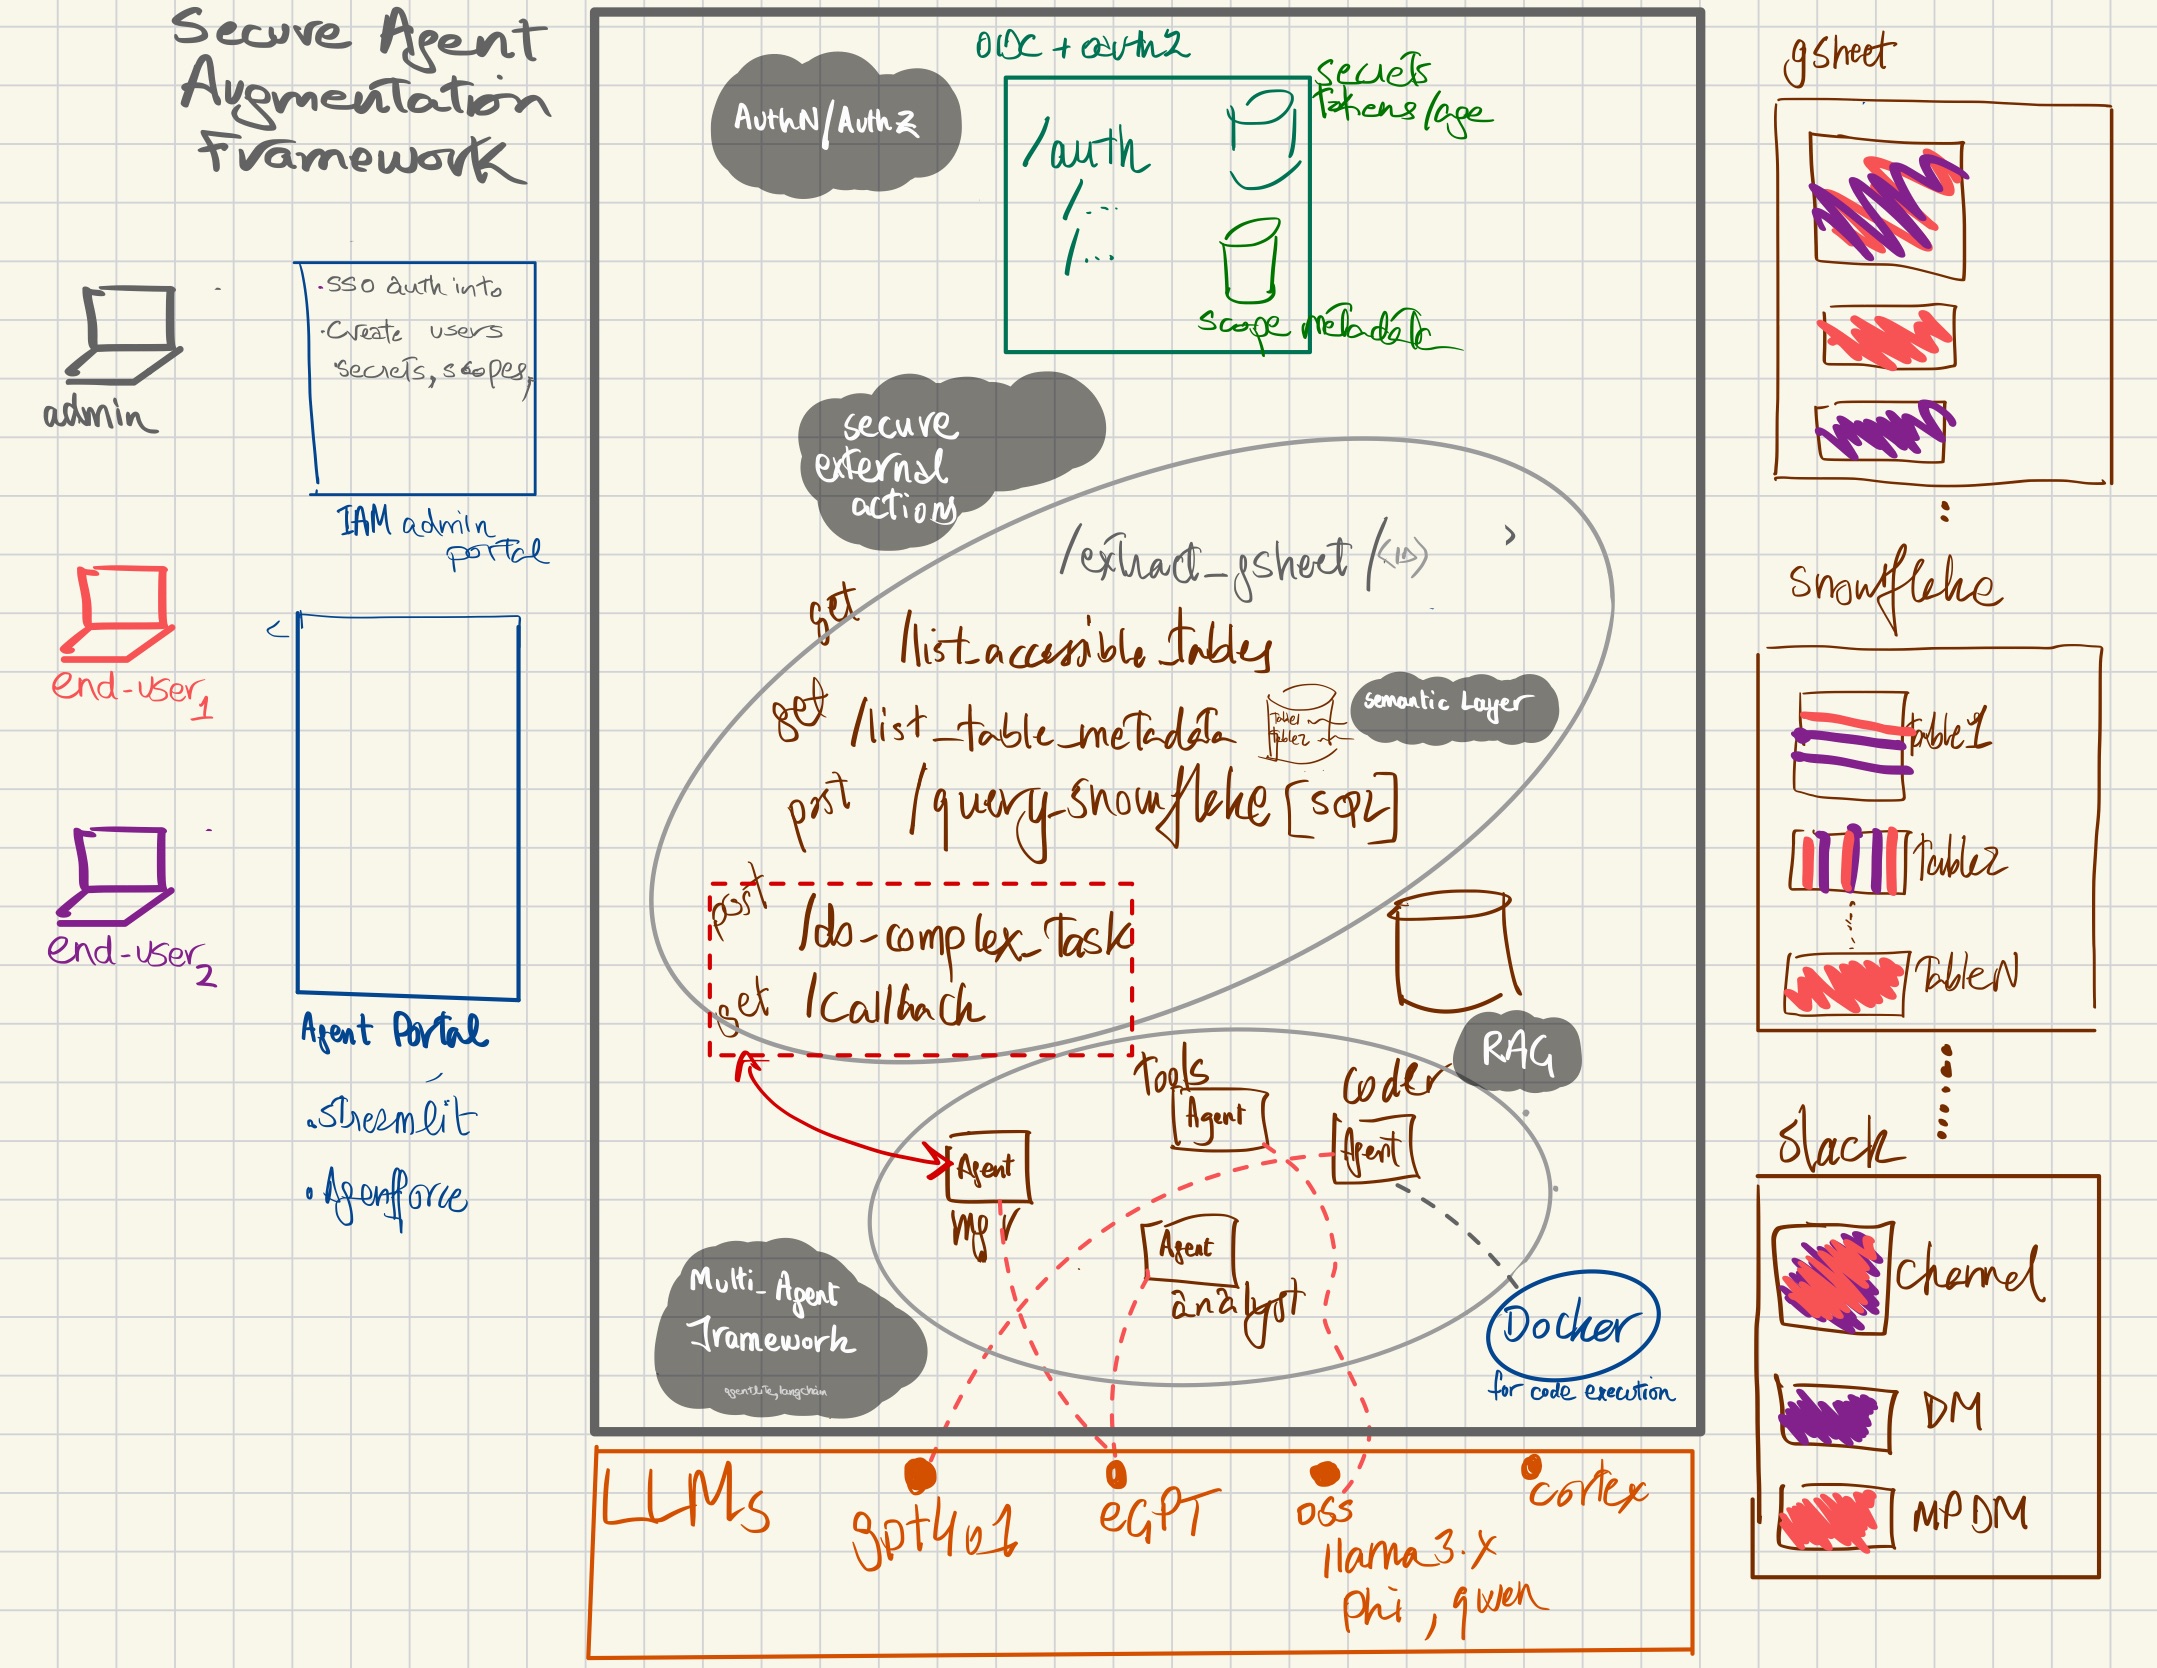 Secure Agent
Augmentation
Framework
admin
• SSO auth into
• Create users
secrets, scopes,
IAM admin
portal
end-user1
end-user2
Agent Portal
• Streamlit
• Agentforce
AuthN/AuthZ
OIDC + oauth2
/auth
/...
/...
secrets
tokens/age
scope metadata
secure
external
actions
/extract_gsheet/<ID>
get
/list_accessible_tables
get /list_table_metadata
Table1
Table2
semantic Layer
post /query_snowflake [SQL]
post /do-complex_Task
get /callback
RAG
tools
Agent
coder
Agent
Agent
mgr
Agent
analyst
Multi_Agent
Framework
agentlite, langchain
Docker
for code execution
LLMs
gpt4o1
eGPT
OSS
llama 3.x
phi, qwen
cortex
gsheet
snowflake
Table1
Table2
TableN
Slack
Channel
DM
MPDM